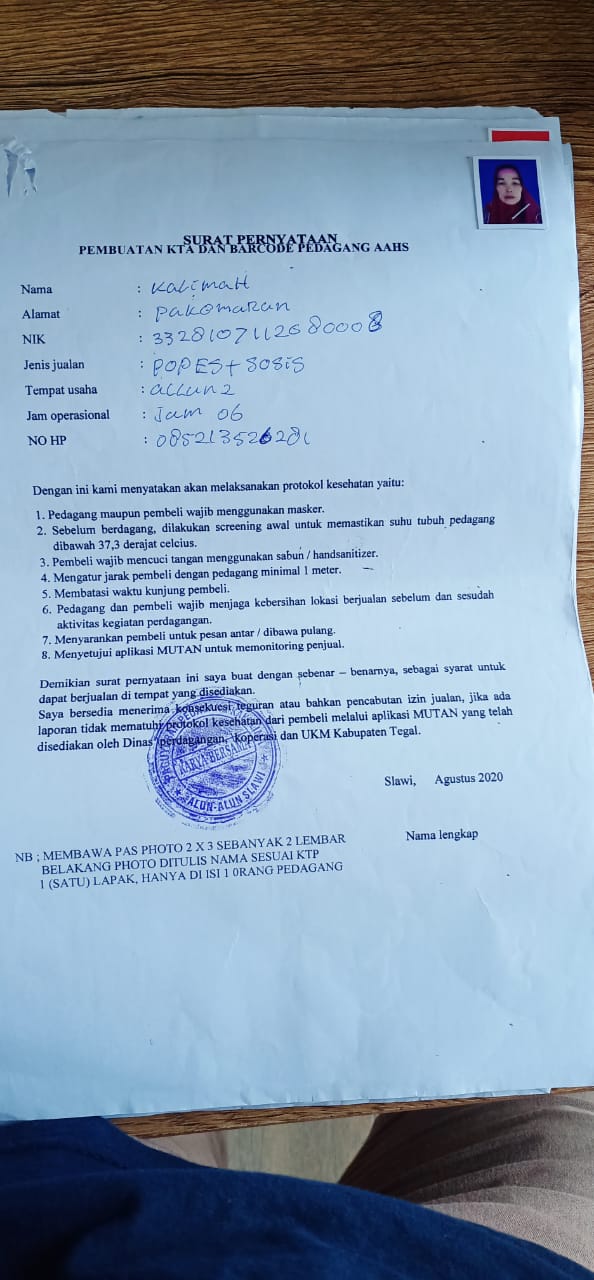 SURAT PERNYATAAN
PEMBUATAN KTA DAN BARCODE PEDAGANG AAHS
Nama : KaLimaH
Alamat : PaKOmaRan
NIK : 3328107112680008
Jenis jualan : POPES + SOSiS
Tempat usaha : aLLun2
Jam operasional : Jam 06
NO HP : 085213526281
Dengan ini kami menyatakan akan melaksanakan protokol kesehatan yaitu:
1. Pedagang maupun pembeli wajib menggunakan masker.
2. Sebelum berdagang, dilakukan screening awal untuk memastikan suhu tubuh pedagang
dibawah 37,3 derajat celcius.
3. Pembeli wajib mencuci tangan menggunakan sabun / handsanitizer.
4. Mengatur jarak pembeli dengan pedagang minimal 1 meter.
5. Membatasi waktu kunjung pembeli.
6. Pedagang dan pembeli wajib menjaga kebersihan lokasi berjualan sebelum dan sesudah
aktivitas kegiatan perdagangan.
7. Menyarankan pembeli untuk pesan antar / dibawa pulang.
8. Menyetujui aplikasi MUTAN untuk memonitoring penjual.
Demikian surat pernyataan ini saya buat dengan sebenar – benarnya, sebagai syarat untuk
dapat berjualan di tempat yang disediakan.
Saya bersedia menerima konsekuesi teguran atau bahkan pencabutan izin jualan, jika ada
laporan tidak mematuhi protokol kesehatan dari pembeli melalui aplikasi MUTAN yang telah
disediakan oleh Dinas perdagangan, koperasi dan UKM Kabupaten Tegal.
KARYA BERSAMA
ALUN-ALUN SLAWI
Slawi, Agustus 2020
Nama lengkap
NB ; MEMBAWA PAS PHOTO 2 X 3 SEBANYAK 2 LEMBAR
BELAKANG PHOTO DITULIS NAMA SESUAI KTP
1 (SATU) LAPAK, HANYA DI ISI 1 0RANG PEDAGANG